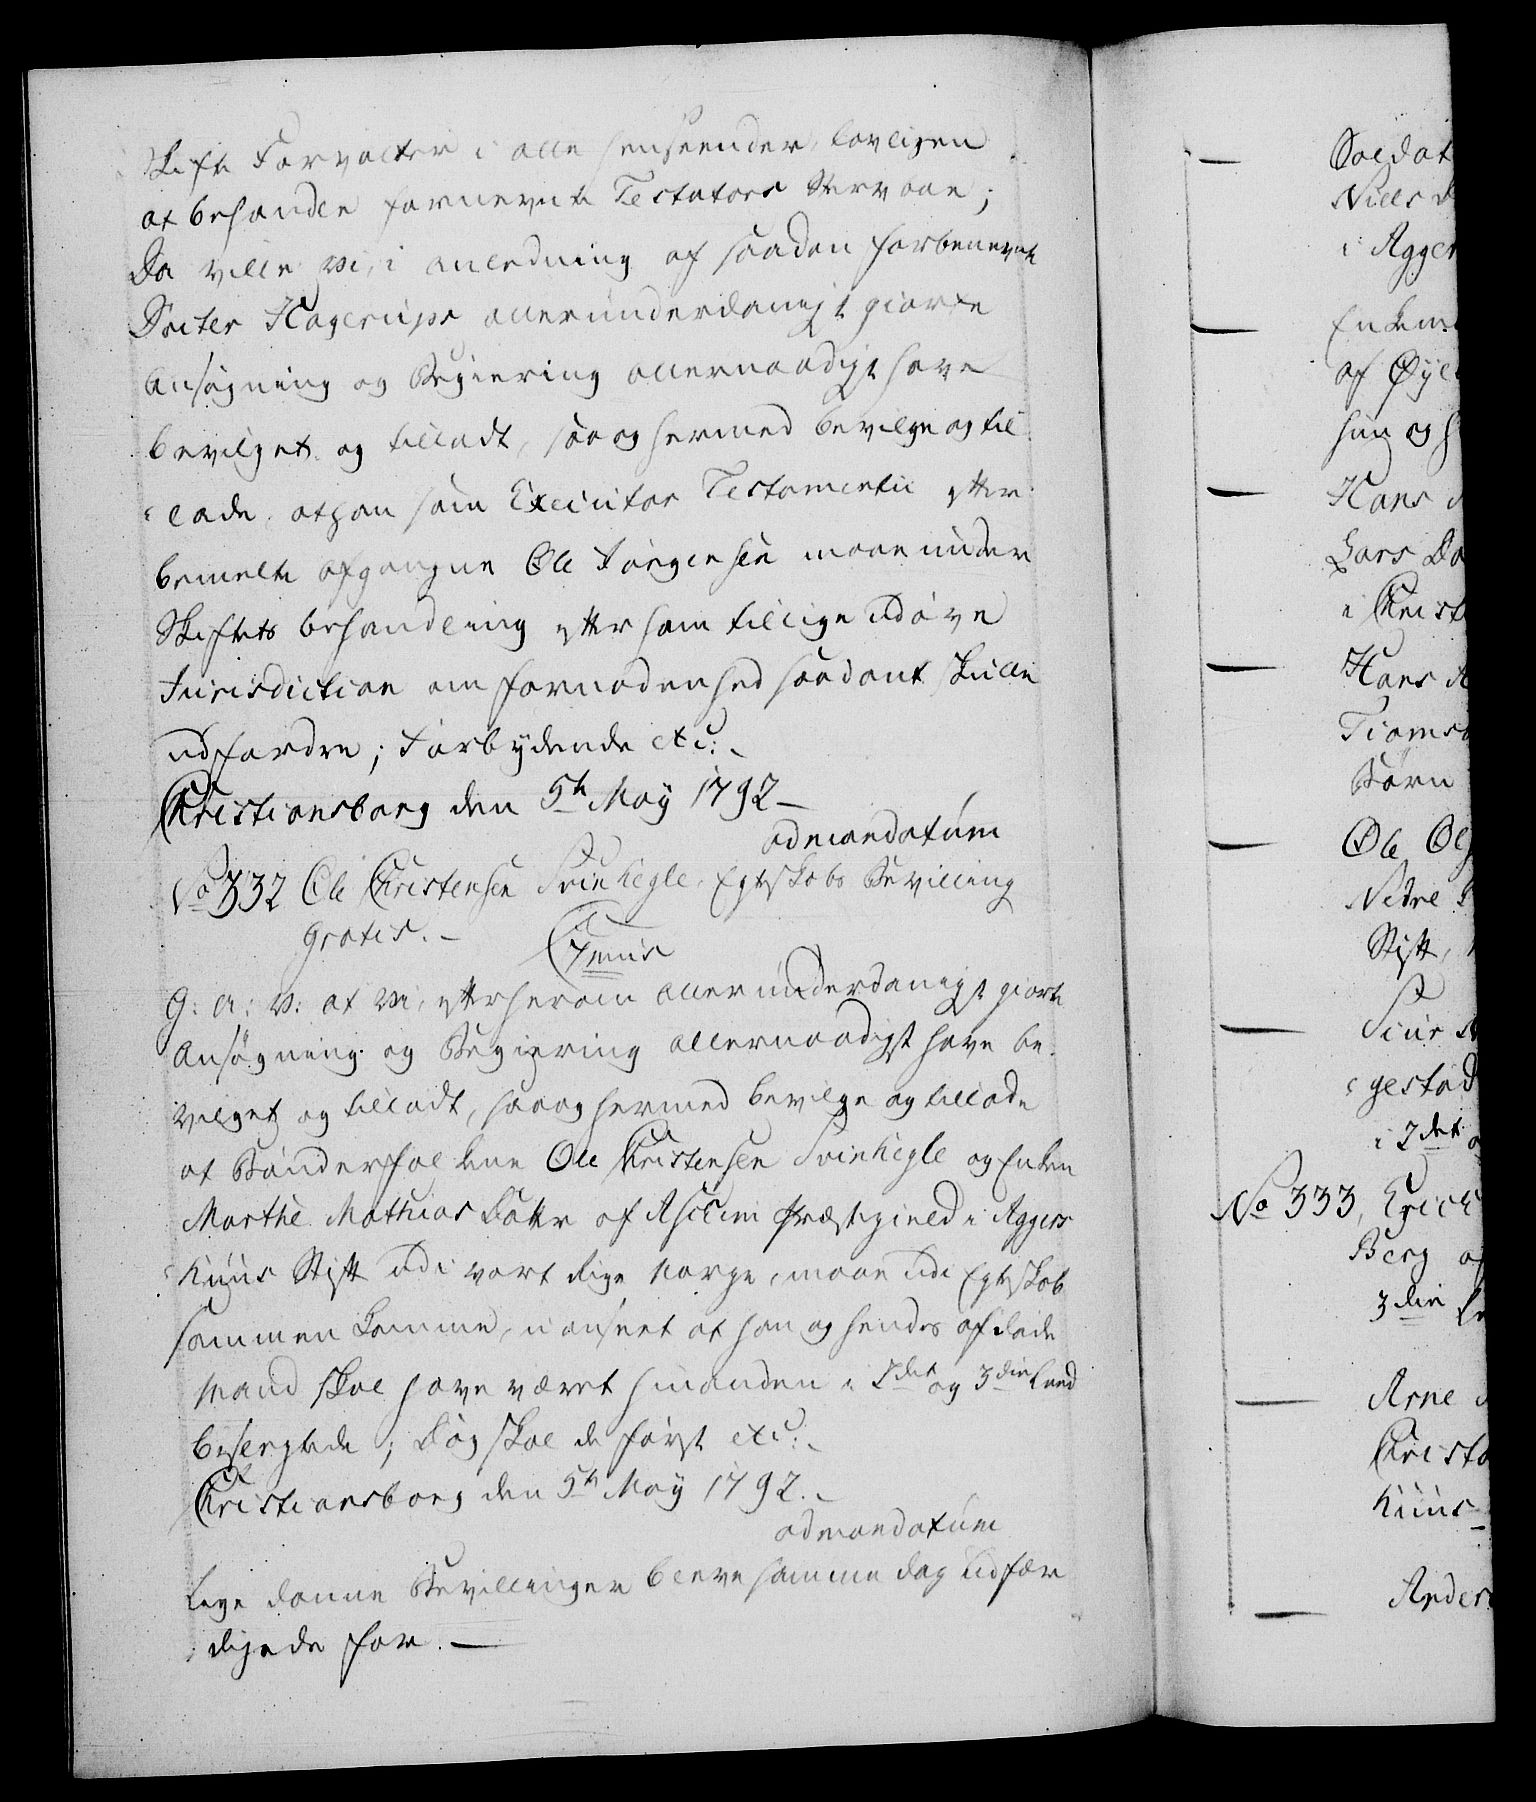 Skifte Forvalter i alle henseender, lovligen
at behandle fornevnte Testators Stervboe;
Da ville Vi, i anledning af saadan forbenevnte
Peter Hagerups allerunderdanigst giorte
Ansøgning og Begiering allernaadigst have
bevilget og tilladt, saa og hermed bevilge og til-
lade, at han som Executor Testamentii efter
bemelte afgangne Ole Jørgensen maae under
Skiftets behandling efter ham tillige udøve
Jurisdiction om fornødenhed saadant skulle
udfordre; Forbydende etc:
Christiansborg den 5te May 1792 —
ad mandatum
No 332 Ole Christensen Svinkegle, Egteskabs Bevilling
Gratis. —
C 7mus
G: A: V: at Vi, efter herom allerunderdanigst giorte
Ansøgning og Begiering allernaadigst have be-
vilget og tilladt, saa og hermed bevilge og tillade
at Bønderfolkene Ole Christensen Svinkegle og Enken
Marthe Mathias Datter af Aschim Præstegield i Agger-
huus Stift udi vort Rige Norge, maae udi Egteskab
sammen komme, uanseet at han og hendes afdøde
Mand skal have været hinanden i 2det og 3die Leed
beslegtede; Dog skal de først etc:
Christiansborg den 5te May 1792. —
ad mandatum
Lige danne Bevillinger bleve samme dag udfær-
digede for. —
— Soldat
Niels
i Agger
— Enkem
af Øye
hun og
— Hans
Lars Da
i Christ
— Hans
Tioms
Børn
— Ole Ols
Nedre
Stift,
— Siur
gestad
i 2det
No 333, Erich
Berg af
3die Le
— Arne
Christ
huus —
— Anders